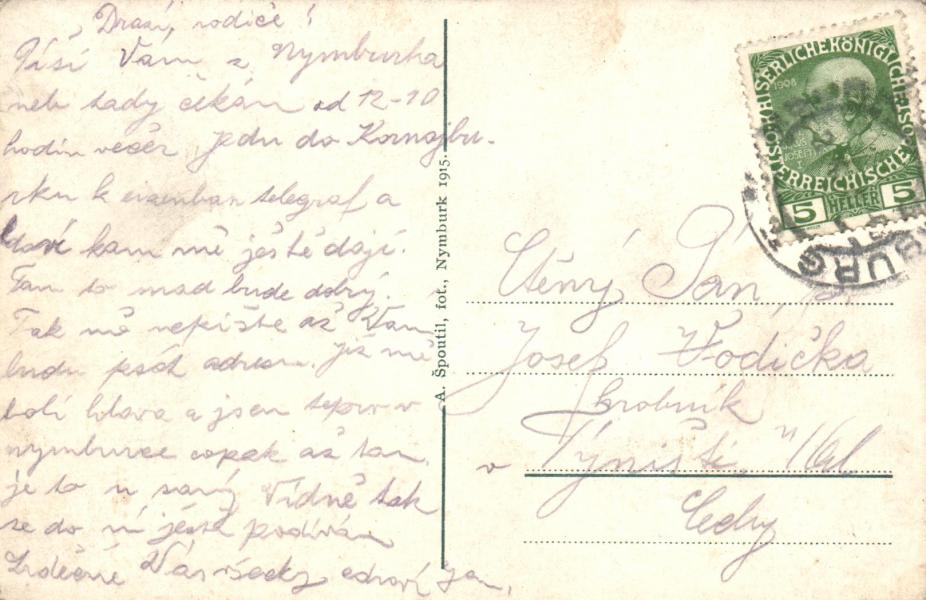 Drazí rodiče!
Píši Vám z Nymburka
neb tady čekám od 12-10
hodin večer jedu do Kornajbu-
rku k eizenban telegraf a
kam mě ještě dají.
Tam to snad bude dobrý.
Tak mě nepište až Vam
budu psát adresu. již mě
bolí hlava a jsem teprv v
nymburce copak až tam.
je to u samý Vídně tak
se do ní ještě podívám
Srdečně Vás všecky zdraví Jan.
A. Špoutil, fot., Nymburk 1915.
Ctěný Pán, pan
Josef Vodička
hrobník
v Týniště n/Orl
Čechy
KAISERLICHE KÖNIGLICHE
ÖSTERREICHISCHE
1908
5 HELLER 5
BURG